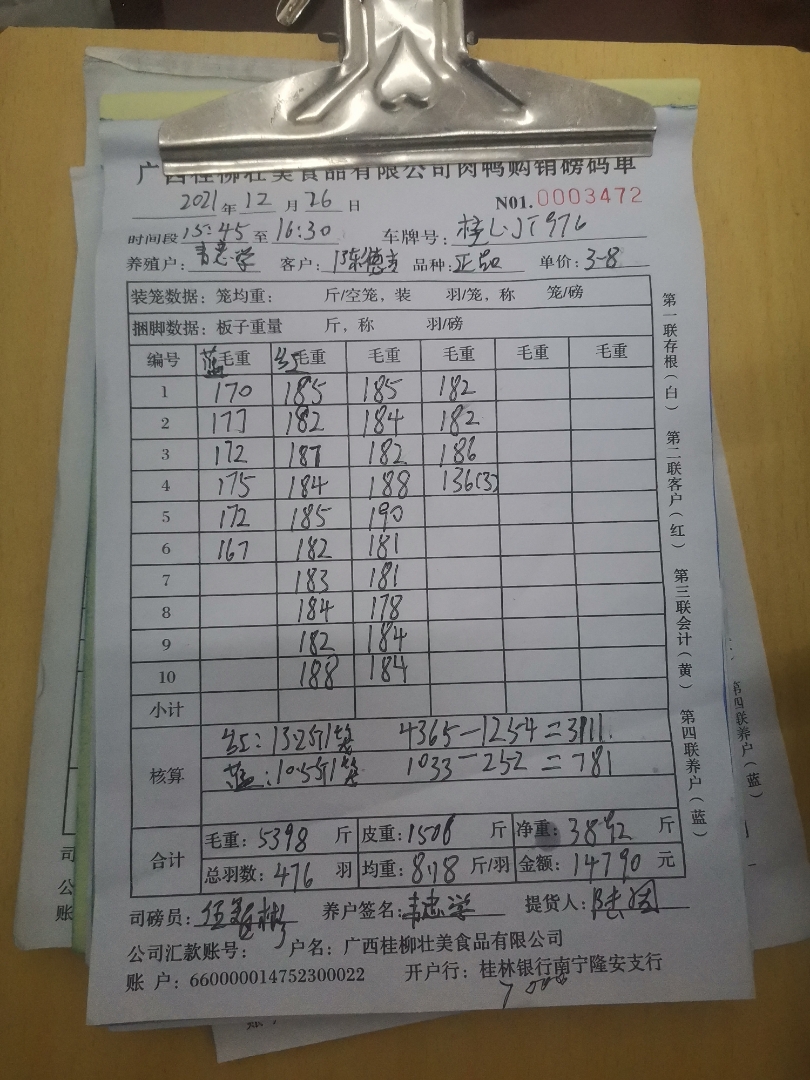 广西桂柳壮美食品有限公司肉鸭购销磅码单
2021年12月26日 N01.0003472
时间段15:45至16:30 车牌号:桂LJT976
养殖户: 客户:陈德 品种:正品 单价:3-8
装笼数据:笼均重: 斤/空笼,装 羽/笼,称 笼/磅
捆脚数据:板子重量 斤,称 羽/磅
编号 蓝毛重 红毛重 毛重 毛重 毛重 毛重
1 170 185 185 182
2 177 182 184 182
3 172 187 182 186
4 175 184 188 136(3)
5 172 185 190
6 167 182 181
7 183 181
8 184 178
9 182 184
10 188 184
小计
核算
红:13.2斤1笼 4365-1254=3111.
蓝:10.5斤1笼 1033-252=781
合计
毛重:5398斤 皮重:1506斤 净重:3892斤
总羽数:476羽 均重:8.18斤/羽 金额:14790元
司磅员: 养户签名:韦志学 提货人:
公司汇款账号: 户名:广西桂柳壮美食品有限公司
账 户:660000014752300022 开户行:桂林银行南宁隆安支行
第一联存根(白) 第二联客户(红) 第三联会计(黄) 第四联养户(蓝)
第四联养户(蓝)
司
公
账